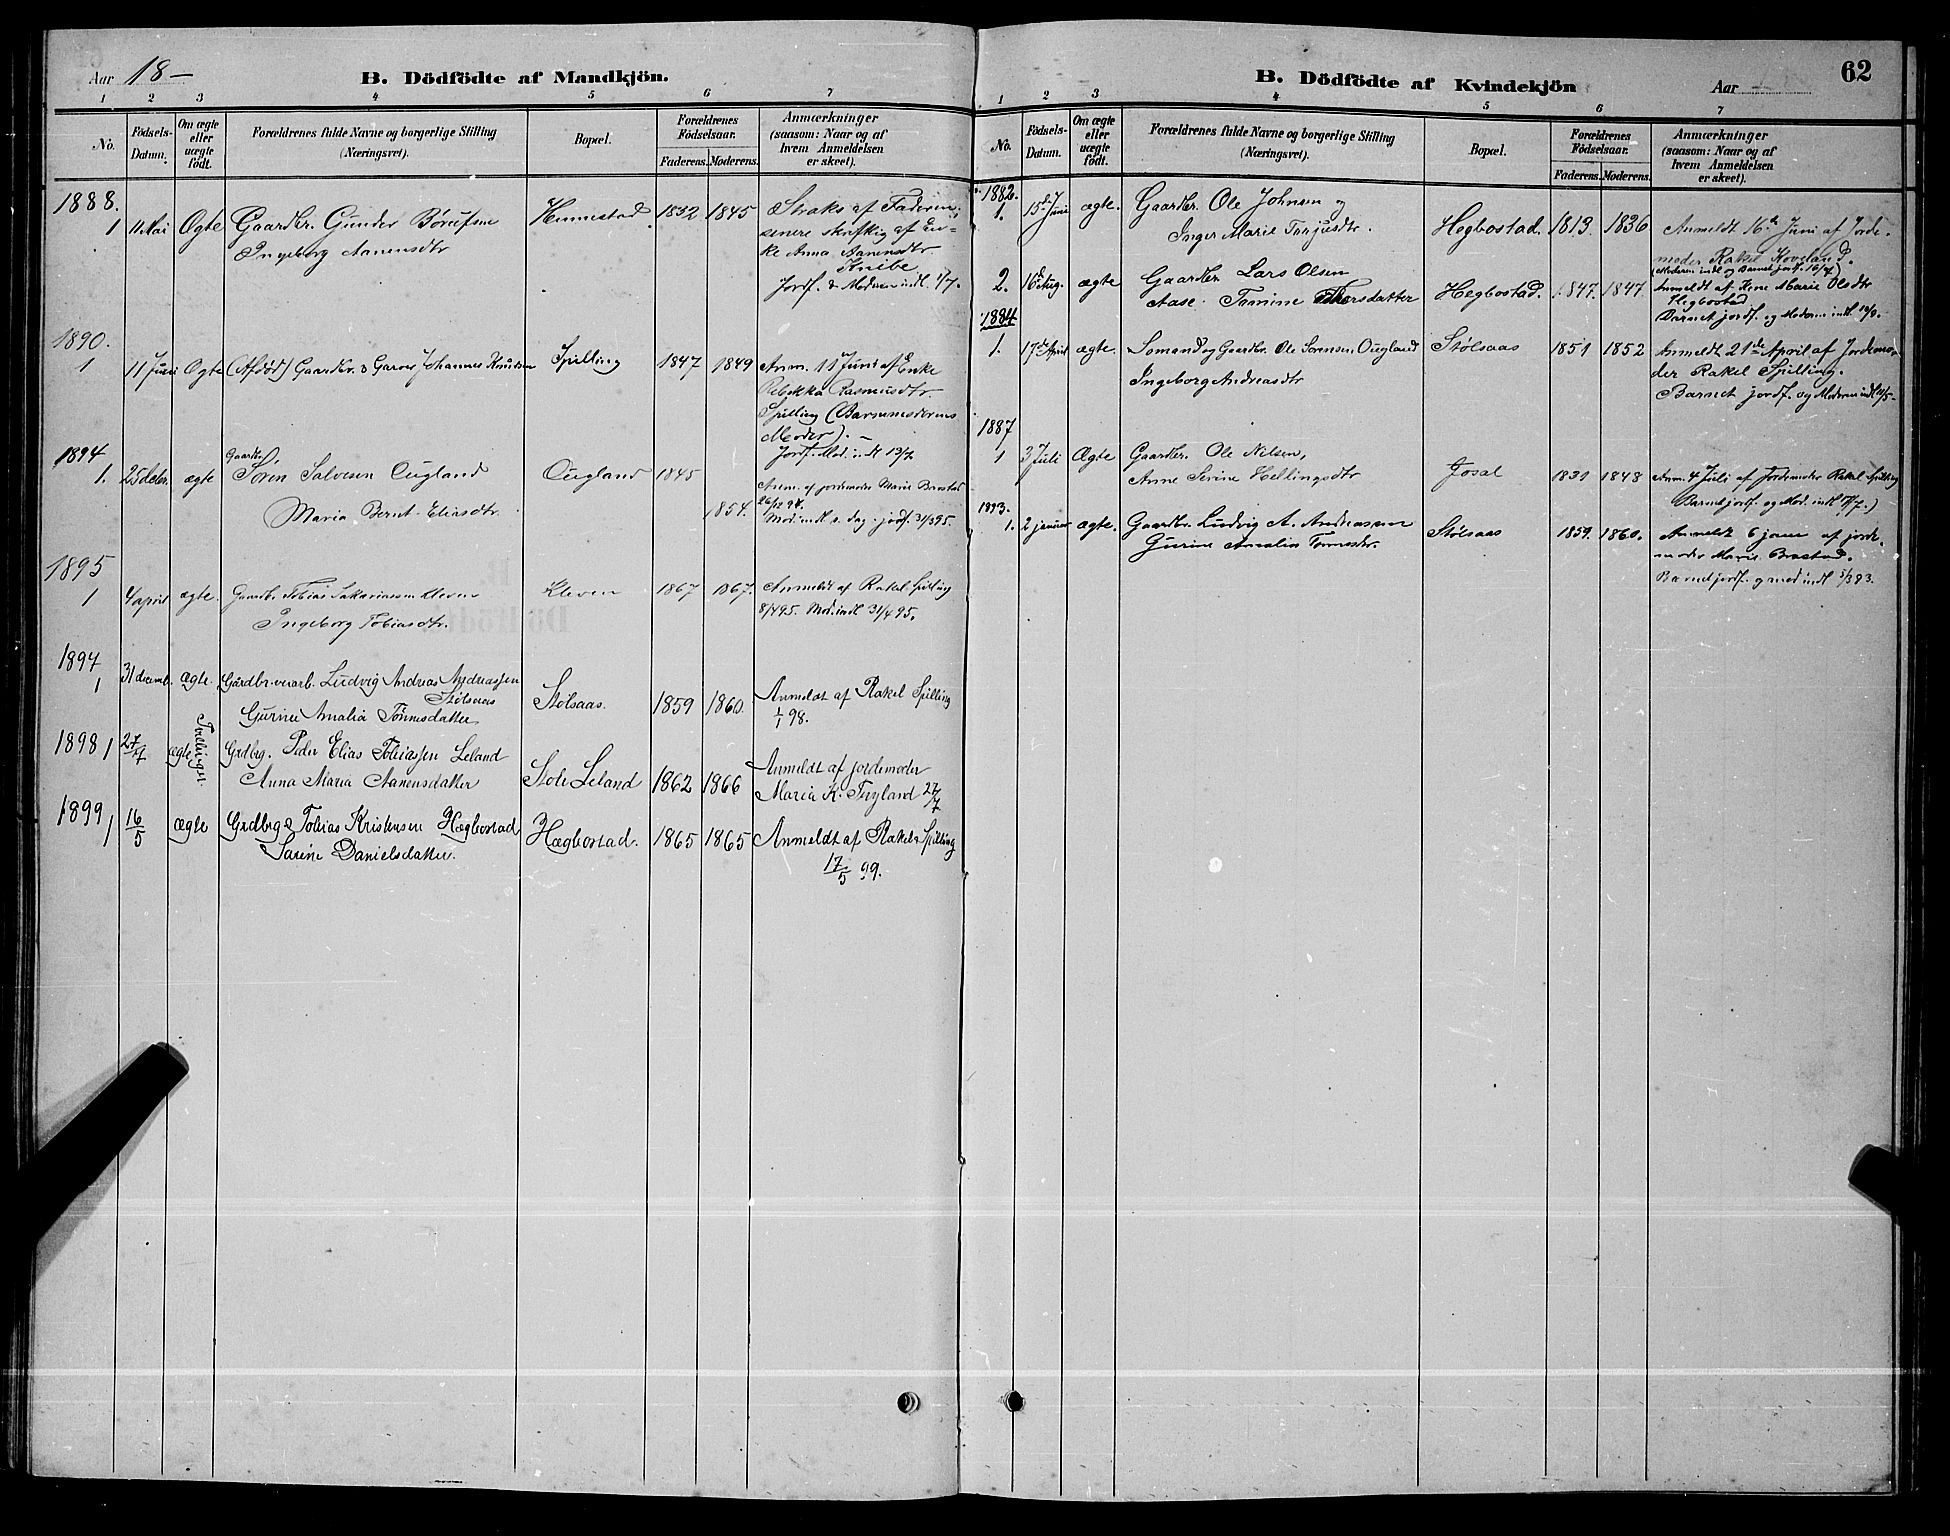 Aar 18 –
B. Dödfödte af Mandkjön.
1 2 3 4 5 6 7
No. Födsels-Datum. Om ægte eller uægte födt. Forældrenes fulde Navne og borgerlige Stilling (Næringsvei). Bopæl. Forældrenes Födselsaar. Faderens. Moderens. Anmærkninger (saasom: Naar og af hvem Anmeldelsen er skeet).
1888.
1 11 Mai Ægte Gaardbr. Gunder
Ingeborg Aanensdtr
Hennestad 1832 1845
Straks af Faderen,
senere skriftlig af En-
ke Anna Aanensdtr
Knibe
Jordf. & Moderen indl. 1/7.
1890.
1 11 Juni Ægte (Afdöd) Gaardbr. & Garver Johannes Knutsen
Spilling 1847 1849
Anm. 11 Juni af Enke
Rebekka Rasmusdtr.
Spilling (Barnemoderens
Moder). –
Jordf. Mod. indl 13/7
1894
1. 25 deber ægte Gaardbr.
Søren Salvesen Ougland
Maria Bernt. Eliasdtr.
Ougland 1845
1854.
Anm. af jordemoder Marie Brastad
26/12 94.
Mod. indl s. dag jordf. 31/3 95.
1895
1 4 april ægte. Gaardbr. Tobias Sakariassen Kleven
Ingeborg Tobiasdtr.
Kleven 1867 1867.
Anmeldt af Rakel Spilling
8/4 95. Mod. indl 31/4 95.
1897
1 31 decemb. ægte. Gårdbr. Ludvig Andreas Andreassen
Stölsaas
Gurine Amalia Tönnesdatter
Stölsaas. 1859 1860.
Anmeldt af Rakel Spilling
1/1 98.
1898 1 27/7 ægte Tvillinger. Grdbrg. Peder Elias Tobiassen Leland
Anna Maria Aanensdatter
Store Leland 1862 1866
Anmeldt af jordemoder
Maria K. Tryland 27/7
1899 1 16/5 ægte Grdbrg Tobias Kristensen Hægbostad
Sarine Danielsdatter.
Hægbostad. 1865 1865
Anmeldt af Rakel Spilling
17/5 99.
B. Dödfödte af Kvindekjön
Aar
62
1 2 3 4 5 6 7
No. Födsels-Datum. Om ægte eller uægte födt. Forældrenes fulde Navne og borgerlige Stilling (Næringsvei). Bopæl. Forældrenes Födselsaar. Faderens. Moderens. Anmærkninger (saasom: Naar og af hvem Anmeldelsen er skeet).
1882.
1. 15de Juni ægte. Gaardbr. Ole Johnsen og
Inger Marie Terjusdtr.
Hegbostad. 1813. 1836
Anmeldt 16de Juni af Jorde-
moder Rakel Hoveland.
(Moderen indl og Barnet jordf. 16/7)
2. 16de Aug. ægte Gaardbr. Lars Olsen
Aase Tomine Thorsdatter
Hegbostad. 1847. 1847.
Anmeldt af Lene Marie Olsdtr
Hegbostad
Barnet jordf. og Modern indl
1884
1. 17de April ægte. Sømand og Gaardbr. Ole Sørensen Ougland
Ingeborg Andreasdtr
Stölsaas 1851 1852
Anmeldt 21de April af Jordemo-
der Rakel Spilling.
Barnet jordf. og Moderen indl
1887
1 3 Juli Ægte Gaardbr. Ole Nilsen,
Anne Serine Hellingsdtr
Josal 1831 1848
Anm. 4 Juli af Jordemoder Rakel Spilling
Barnet jordf. og Mod. indl
1893.
1. 2 januar ægte. Gaardbr. Ludvig A. Andreassen
Gurine Amalia Tønnesdtr.
Stölsaas 1859. 1860.
Anmeldt 6 janr af jorde-
moder Marie Brastad.
Barnet jordf. og mod indl 5/3 93.